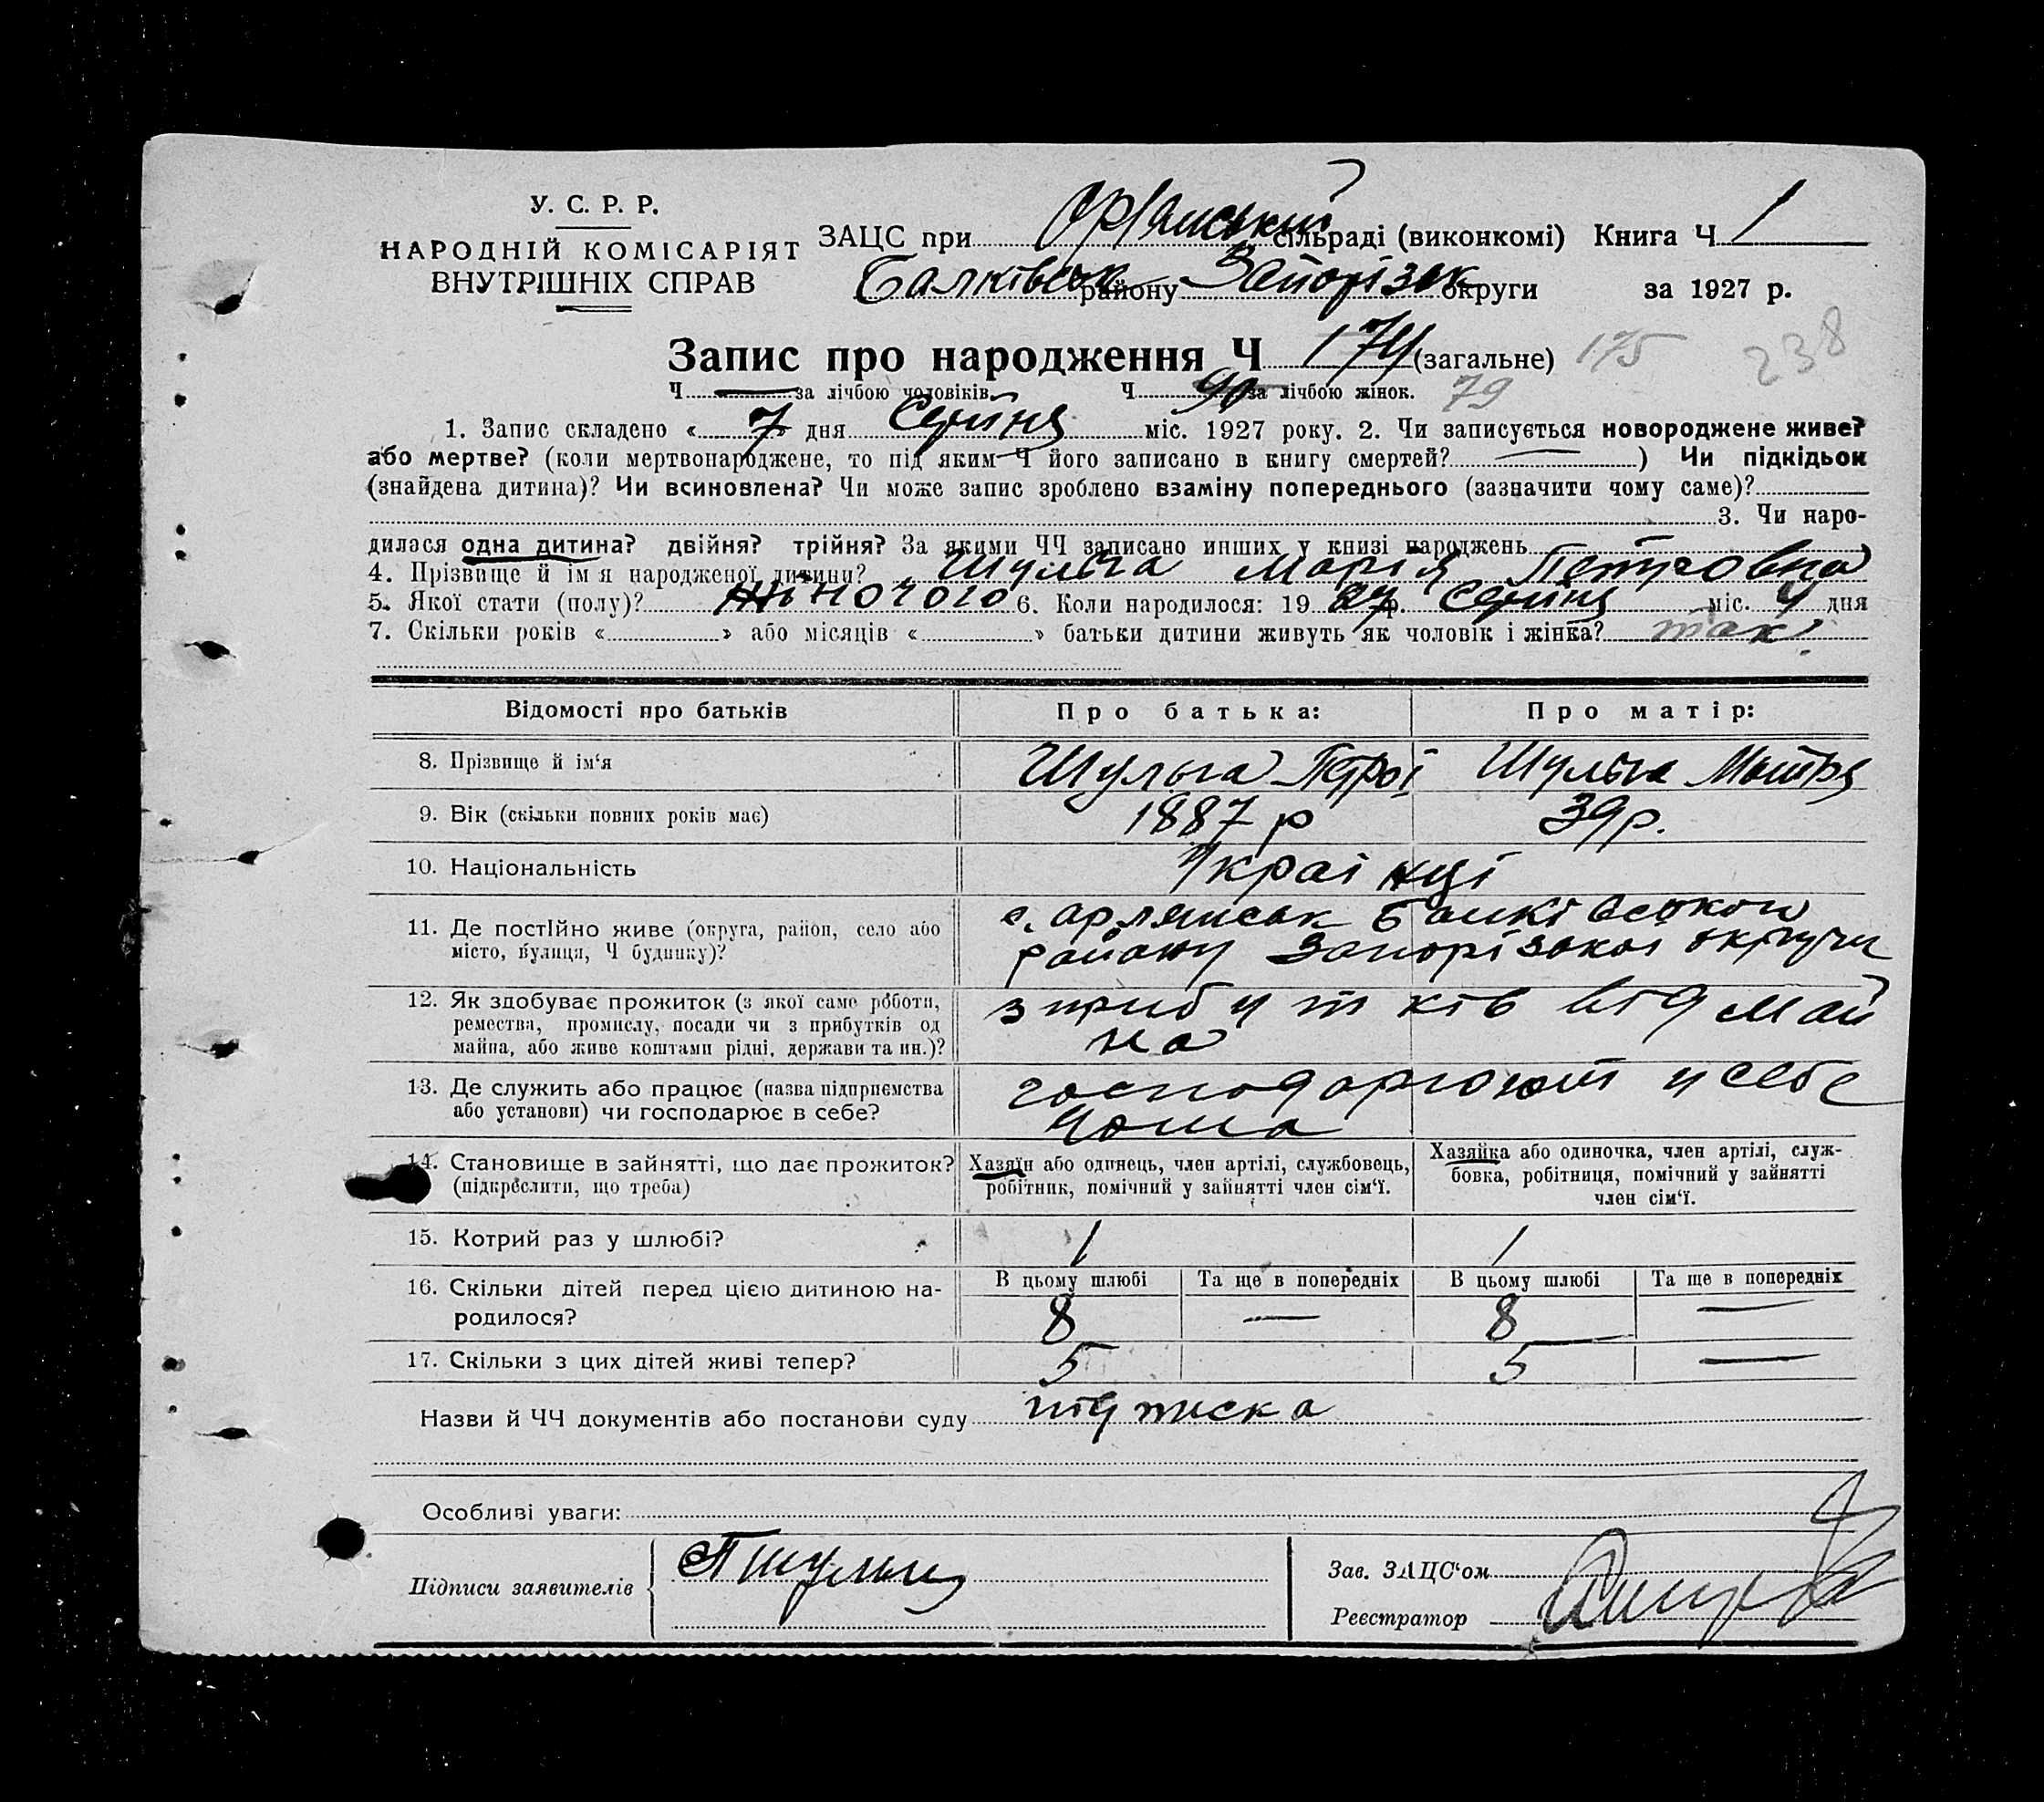 У. С. Р. Р.
НАРОДНІЙ КОМІСАРІЯТ
ВНУТРІШНІХ СПРАВ
ЗАЦС при Орлянській сільраді (виконкомі) Книга Ч 1
Балківськ району Запорізьк округи за 1927 р.
Запис про народження Ч 174 (загальне) 175 238
Ч — за лічбою чоловіків Ч 90 за лічбою жінок. 79
1. Запис складено « 7 » дня Серпня міс. 1927 року. 2. Чи записується новороджене живе?
або мертве? (коли мертвонароджене, то під яким Ч його записано в книгу смертей? — ) Чи підкідьок
(знайдена дитина)? Чи всиновлена? Чи може запис зроблено взаміну попереднього (зазначити чому саме)?
3. Чи наро-
дилася одна дитина? двійня? трійня? За якими ЧЧ записано инших у книзі народжень
4. Прізвище й ім'я народженої дитини? Шульга Марія Петровна
5. Якої стати (полу)? жіночого 6. Коли народилося: 19 27 р. Серпня міс. 4 дня
7. Скільки років « » або місяців « » батьки дитини живуть як чоловік і жінка? так
Відомості про батьків Про батька: Про матір:
8. Прізвище й ім'я Шульга Шульга
9. Вік (скільки повних років має) 1887 р 39 р.
10. Національність Украінці
11. Де постійно живе (округа, район, село або
місто, вулиця, Ч будинку)?
с. Орлянськ Балківського
району Запорізокоі округи
12. Як здобуває прожиток (з якої саме роботи,
ремества, промислу, посади чи з прибутків од
майна, або живе коштами рідні, держави та ин.)?
з прибутків від май
на
13. Де служить або працює (назва підприємства
або установи) чи господарює в себе?
господарюют у себе
дома
14. Становище в зайнятті, що дає прожиток?
(підкреслити, що треба)
Хазяїн або одинець, член артілі, службовець,
робітник, помічний у зайнятті член сім'ї.
Хазяйка або одиночка, член артілі, служ-
бовка, робітниця, помічний у зайнятті
член сім'ї.
15. Котрий раз у шлюбі? 1 1
В цьому шлюбі Та ще в попередніх В цьому шлюбі Та ще в попередніх
16. Скільки дітей перед цією дитиною на-
родилося? 8 — 8 —
17. Скільки з цих дітей живі тепер? 5 5 —
Назви й ЧЧ документів або постанови суду підписка
Особливі уваги:
Підписи заявителів
Зав. ЗАЦС'ом
Реєстратор